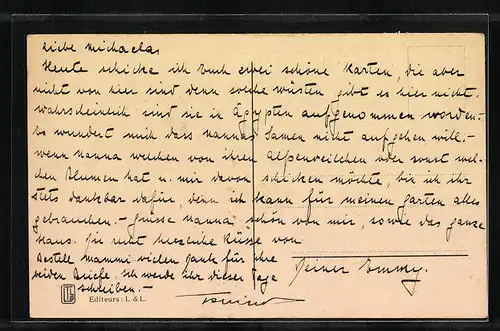 Liebe Michaela,
Heute schicke ich Euch zwei schöne Karten, die aber
nicht von hier sind denn solche Wüsten gibt es hier nicht,
wahrscheinlich sind sie in Ägypten aufgenommen worden.-
Es wundert mich dass Nannas Samen nicht aufgehen will.-
Wenn Nanna welchen von ihren Alpenveilchen oder sonst wel-
chen Blumen hat u. mir davon schicken möchte, bin ich ihr
stets dankbar dafür, denn ich kann für meinen Garten alles
gebrauchen.- Grüsse Nanna schön von mir, sowie das ganze
Haus. Dir recht herzliche Küsse von
Deiner Emmy.
Bestell Mammi vielen Dank für ihre
beiden Briefe, ich werde ihr dieser Tage
schreiben.-
Editeurs: L & L.